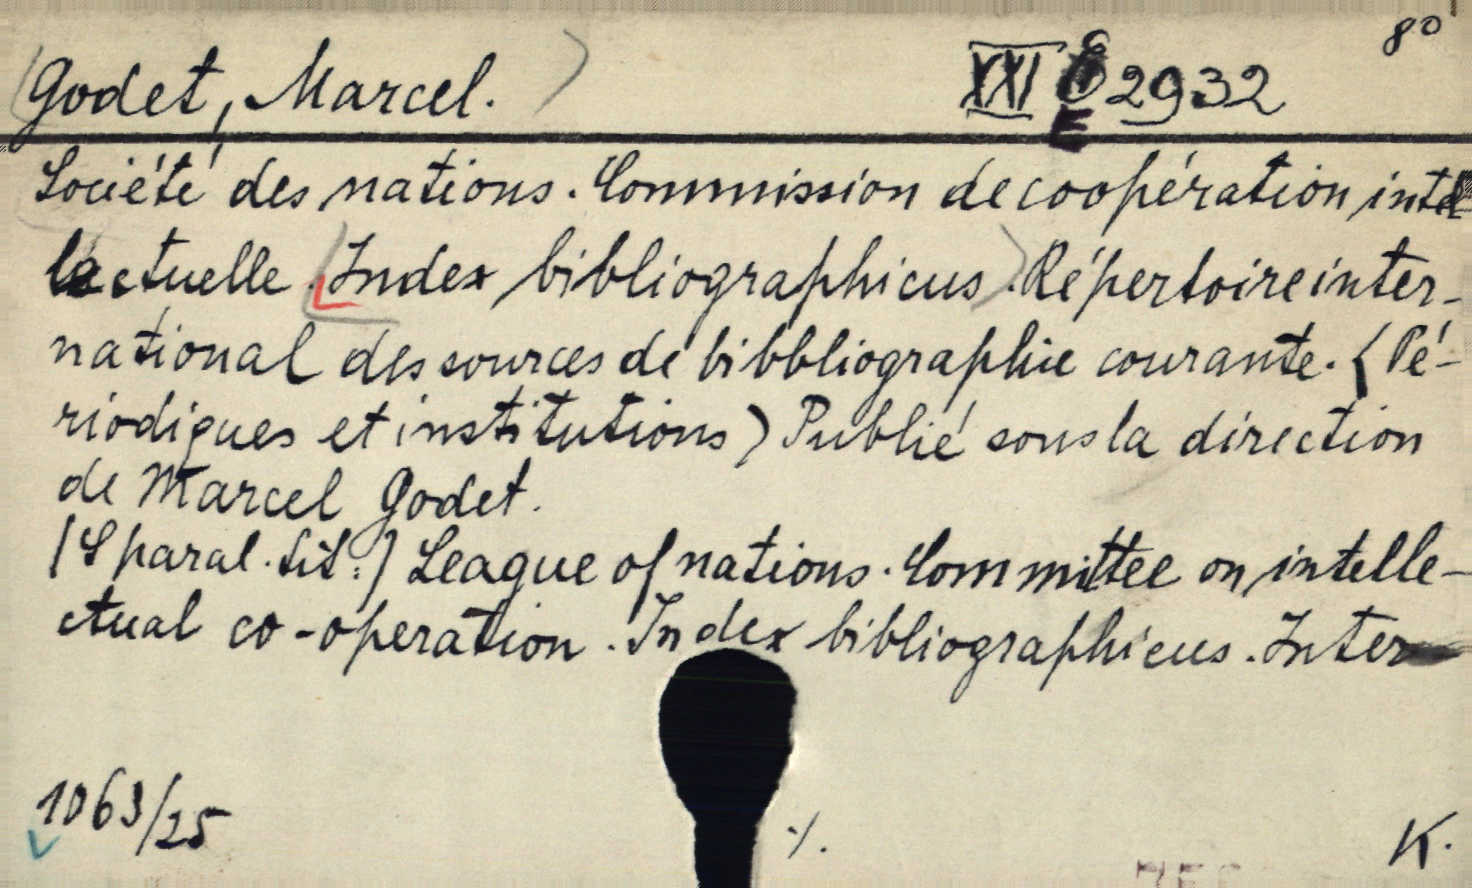 8°
(Godet, Marcel.) XXI E 2932
E
Société des nations. Commission de coopération intel
lectuelle. (Index bibliographicus). Répertoire inter-
national des sources de bibbliographie courante. (Pé-
riodiques et institutions) Publié sous la direction
de Marcel Godet.
(Sparal. tit.:) League of nations. Committee on intelle-
ctual co-operation. Index bibliographicus. Inter-
1063/25
./.
K.